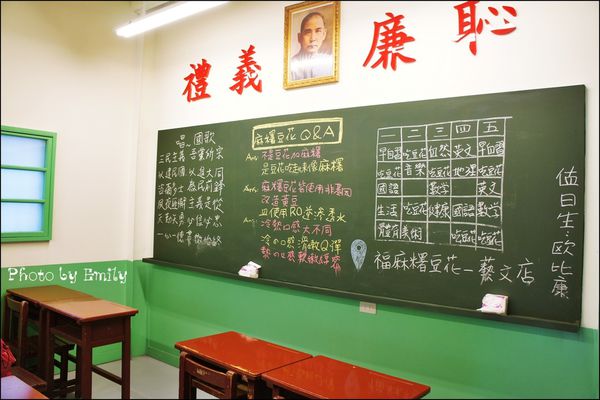 禮義廉恥
唱~國歌
三民主義 吾黨所宗
以建民國 以進大同
咨爾多士 為民前鋒
夙夜匪懈 主義是從
矢勤矢勇 必信必忠
一心一德 貫徹始終
麻糬豆花Q&A
Ans: 不是豆花加麻糬
是豆花吃起來像麻糬
Ans: 麻糬豆花皆使用非基因
改造黃豆
且使用RO逆滲透水
Ans: 冷熱口感大不同
冷の口感滑嫩Q彈
熱の口感軟嫩綿密
一 二 三 四 五
早自習 吃豆花 自然 英文 早自習
吃豆花 音樂 吃豆花 地理 吃豆花
國語 數學 英文
生活 吃豆花 健康 國語 數學
體育 美術 吃豆花 吃豆花
福麻糬豆花-藝文店
值日生:歐比康
Photo by Emily